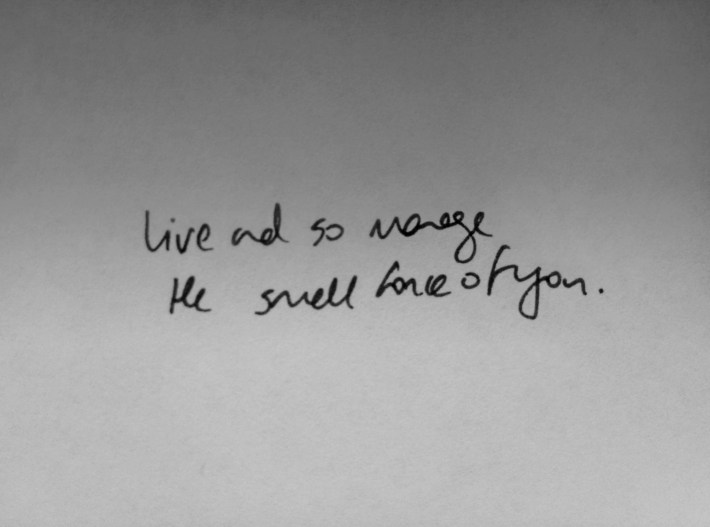 Live and so manage
the small force of you.